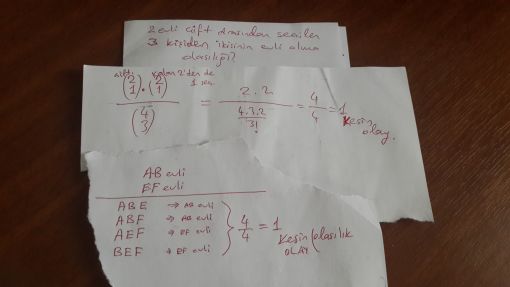 2 evli çift arasından seçilen
3 kişiden ikisinin evli olma
olasılığı?
çift kalan 2'den de
1 seç.
(2 1) . (2 1) / (4 3) = 2.2 / (4.3.2 / 3!) = 4/4 = 1
Kesin
olay.
AB evli
EF evli
ABE → AB evli
ABF → AB evli
AEF → EF evli
BEF → EF evli
} 4/4 = 1
Kesin olasılık
OLAY